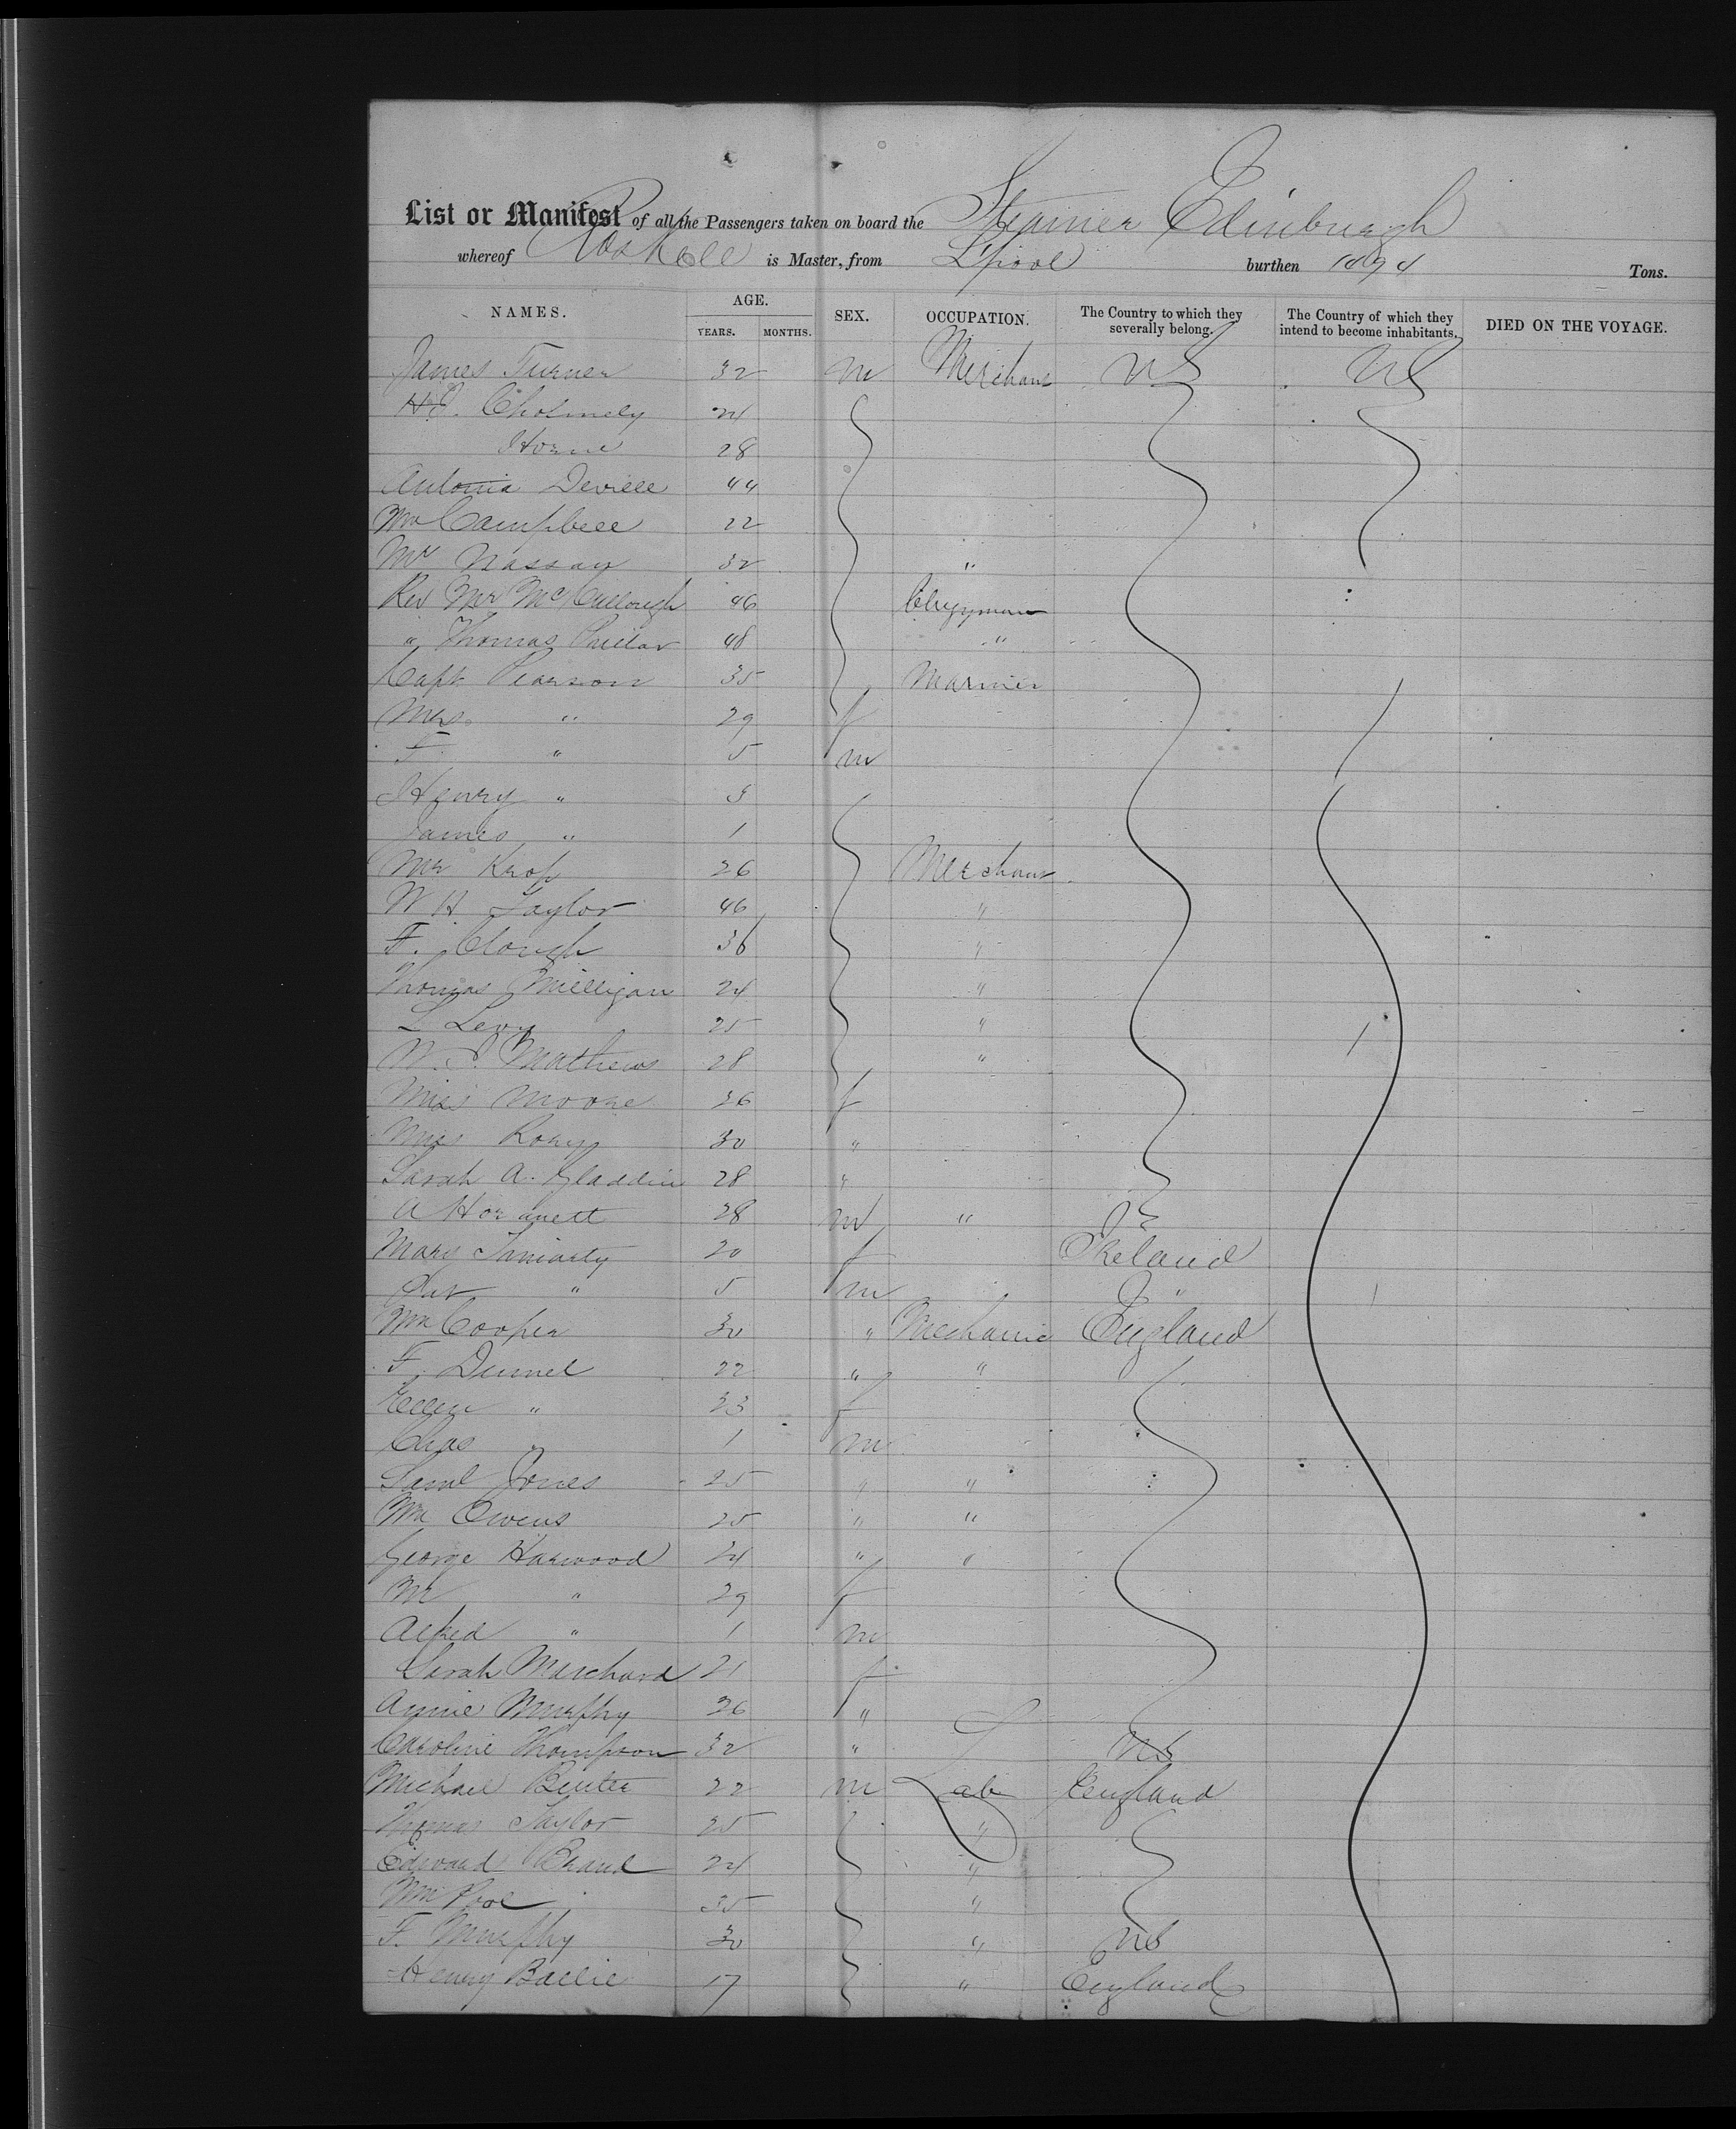 List or Manifest of all the Passengers taken on board the Steamer Edinburgh
whereof Roskell is Master, from L'pool burthen 1494 Tons.
NAMES. AGE. YEARS. MONTHS. SEX. OCCUPATION. The Country to which they severally belong. The Country of which they intend to become inhabitants. DIED ON THE VOYAGE.
James Turner 32 m Merchant US US
Cholmely 24
Horne 28
Deville 44
Wm Campbell 22
Mr Nassau 32 "
Rev Mr McCullough 46 Clergyman
" Thomas 48 "
Capt Pearson 35 Mariner
Mrs " 29 f
F. " 5 m
Henry " 3
James " 1
Mr Krop 26 Merchant
W H Taylor 46 "
F. Clough 36 "
Thomas Milligan 24 "
L Levy 25 "
W. S. Mathews 28 "
Miss Moore 26 f
30 "
Sarah A. Gladdin 28 "
A 28 m "
Mary 20 f Ireland
Pat " 5 m "
Wm Cooper 30 " Mechanic England
F. 22 " "
Ellen " 23 f
Chas " 1 m
Saml Jones 25 " "
Wm Owens 25 " "
George Harwood 24 " "
" 29 f
Alfred " 1 m
Sarah 21 f
Annie Murphy 26 "
Caroline Thompson 32 " US
Michael 22 m Lab England
Thomas Taylor 25 "
Edward Brand 24 "
Wm Pool 35 "
F. Murphy 30 " US
Henry Bailie 17 " England